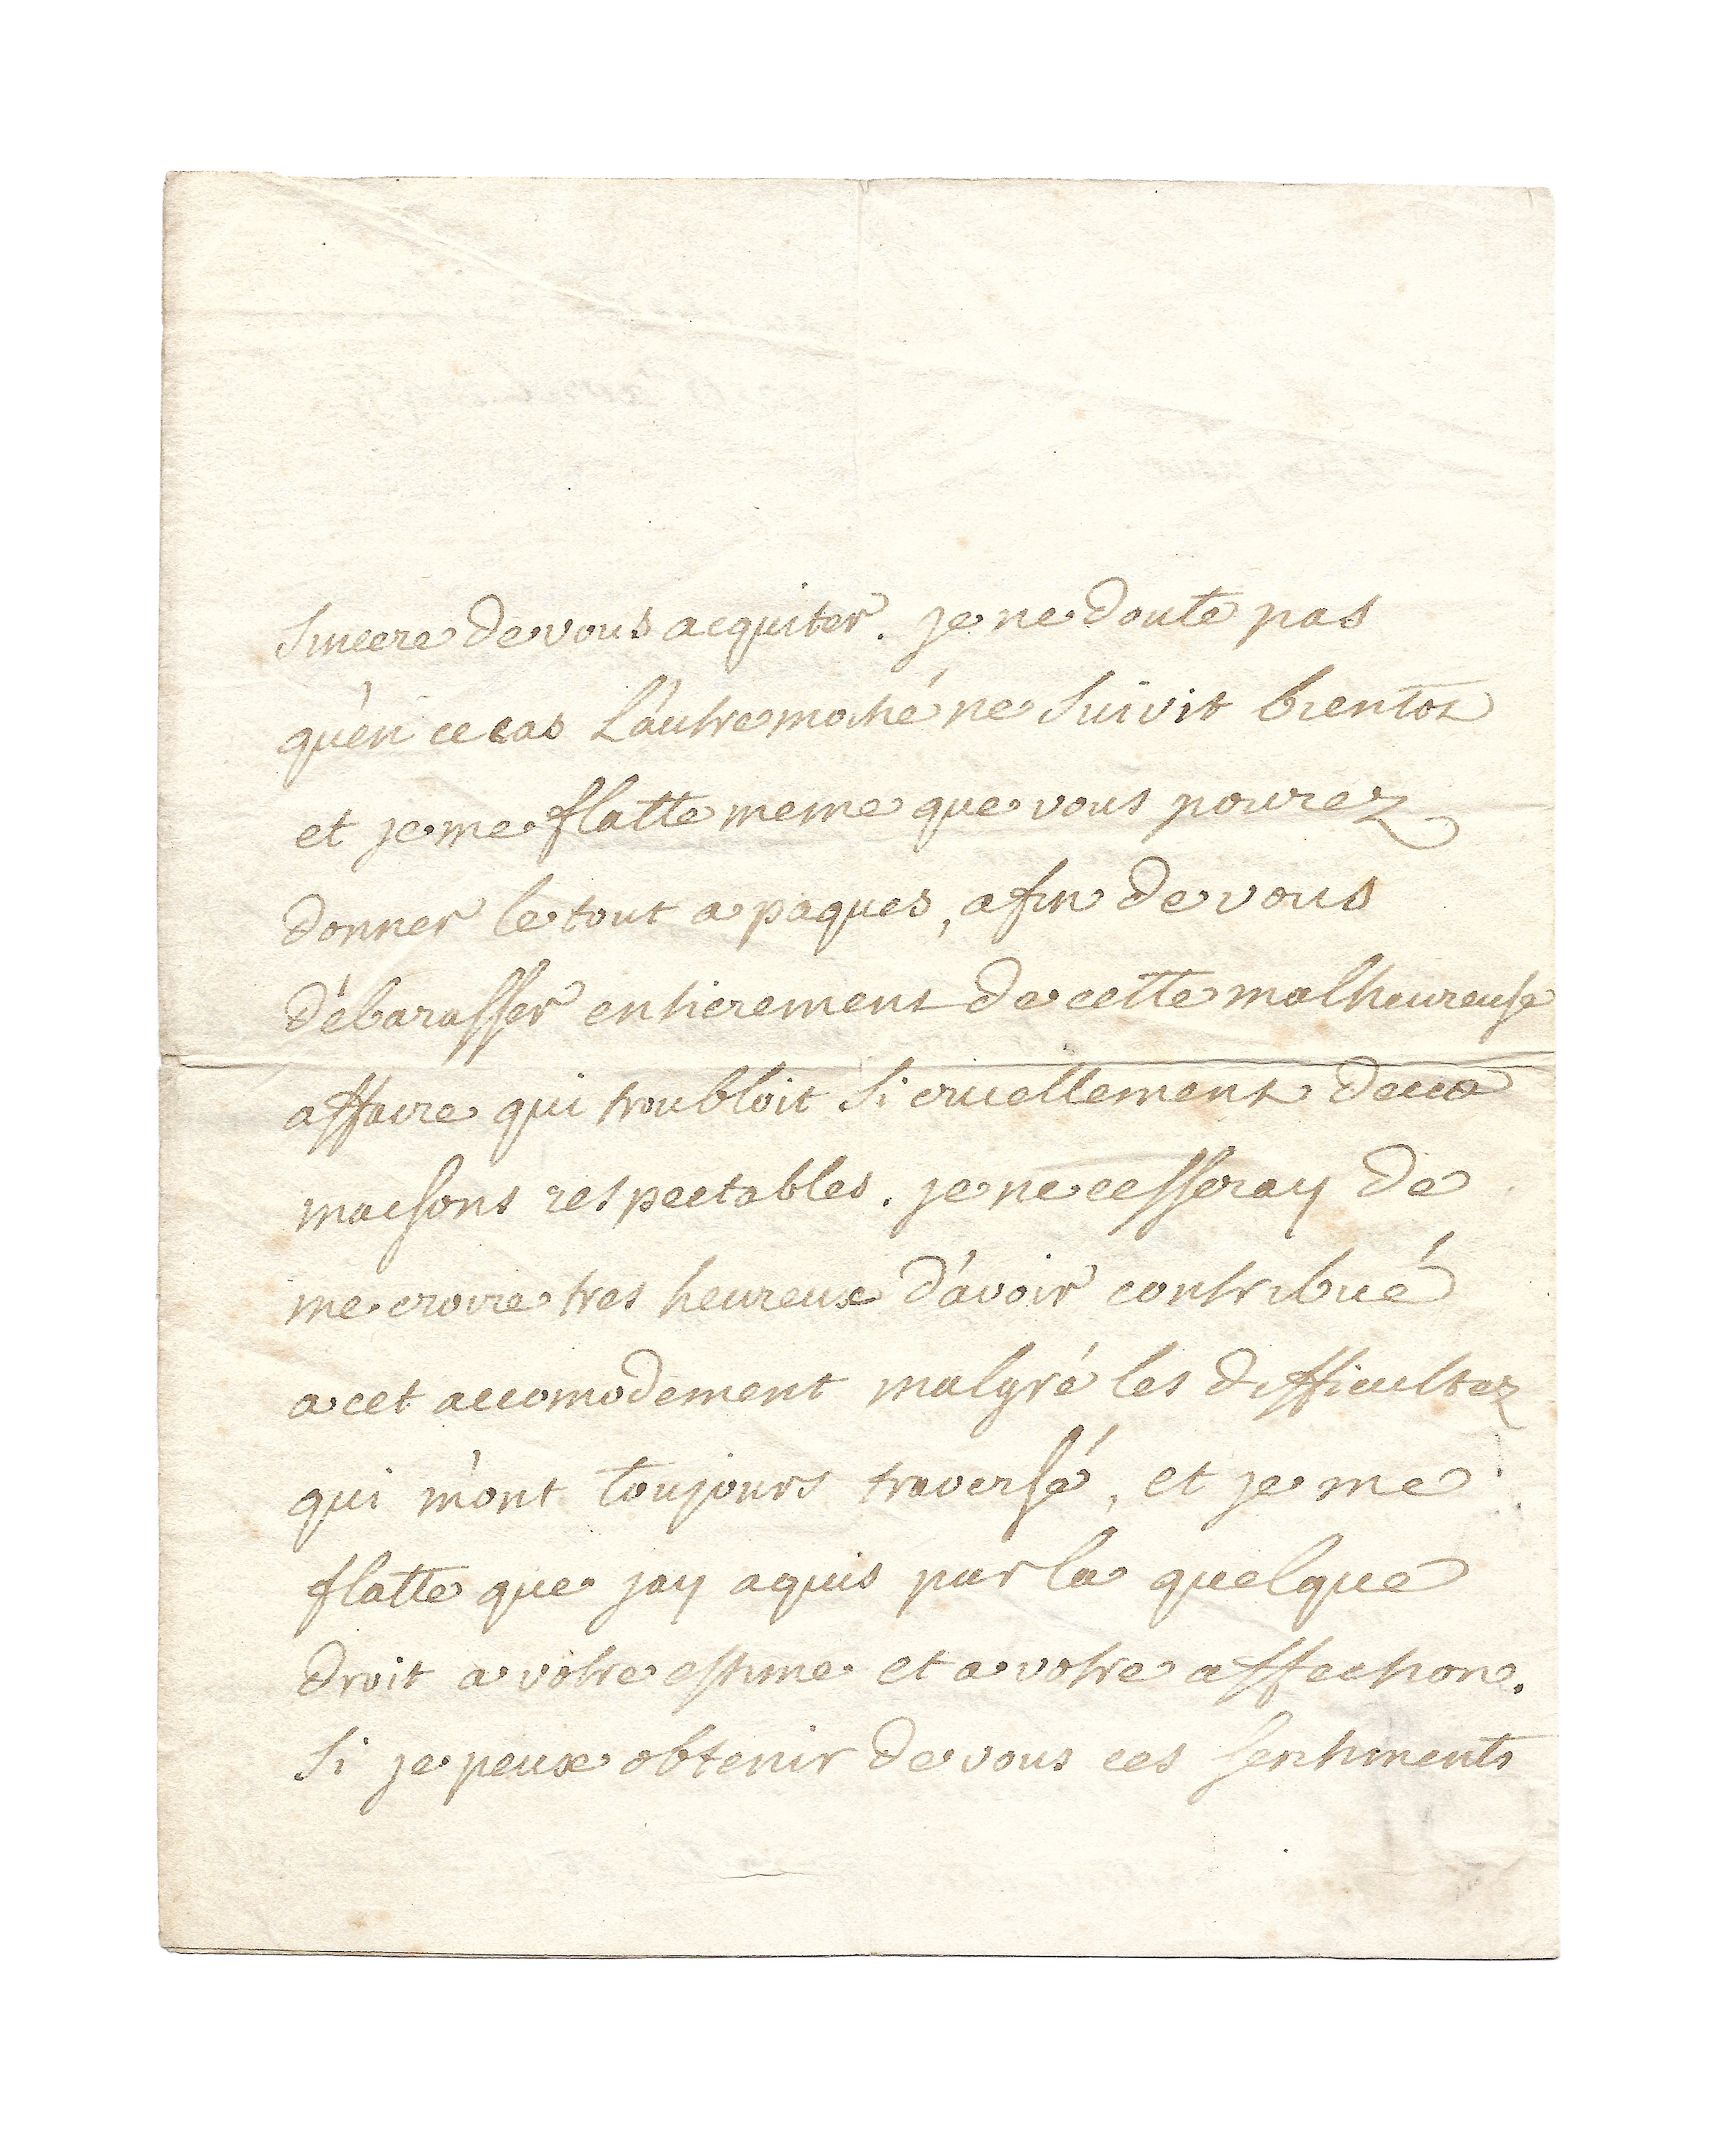 sincere de vous acquiter. je ne doute pas
qu'en ce cas L'autre moitié ne suivit bientot
et je me flatte meme que vous pourez
donner le tout a paques, afin de vous
débarasser entierement de cette malheureuse
affaire qui troubloit si cruellement deux
maisons respectables. je ne cesseray de
me croire tres heureux d'avoir contribué
a cet accomodement malgré les difficultez
qui m'ont toujours traversé, et je me
flatte que jay aquis par la quelque
droit a votre estime et a votre affection.
si je peux obtenir de vous ces sentiments